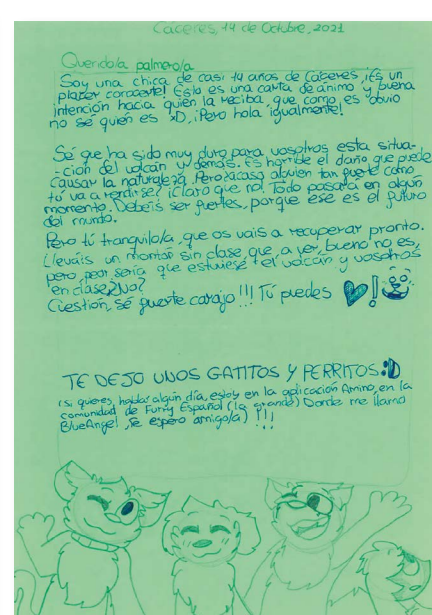 Cáceres, 14 de Octubre, 2021
Querido/a palmero/a
Soy una chica de casi 14 años de Cáceres, ¡Es un
placer conocerte! Esto es una carta de ánimo y buena
intención hacia quién la reciba, que como es obvio
no sé quien es xD, ¡Pero hola igualmente!
Sé que ha sido muy duro para vosotros esta situa-
-ción del volcán y demás. Es horrible el daño que puede
causar la naturaleza. Pero ¿acaso alguien tan fuerte como
tú va a rendirse? ¡Claro que no! Todo pasará en algún
momento. Debéis ser fuertes, porque ese es el futuro
del mundo.
Pero tú tranquilo/a, que os vais a recuperar pronto.
Lleváis un montón sin clase, que a ver, bueno no es,
pero, peor sería que estuviese el volcán y vosotros
en clase ¿No?
Cuestión, sé fuerte carajo!!! Tú puedes
TE DEJO UNOS GATITOS Y PERRITOS :D
(si quieres, hablar algún día, estoy en la aplicación Amino, en la
comunidad de Furry Español (la grande) Donde me llamo
BlueAngel, te espero amigo/a) !!!